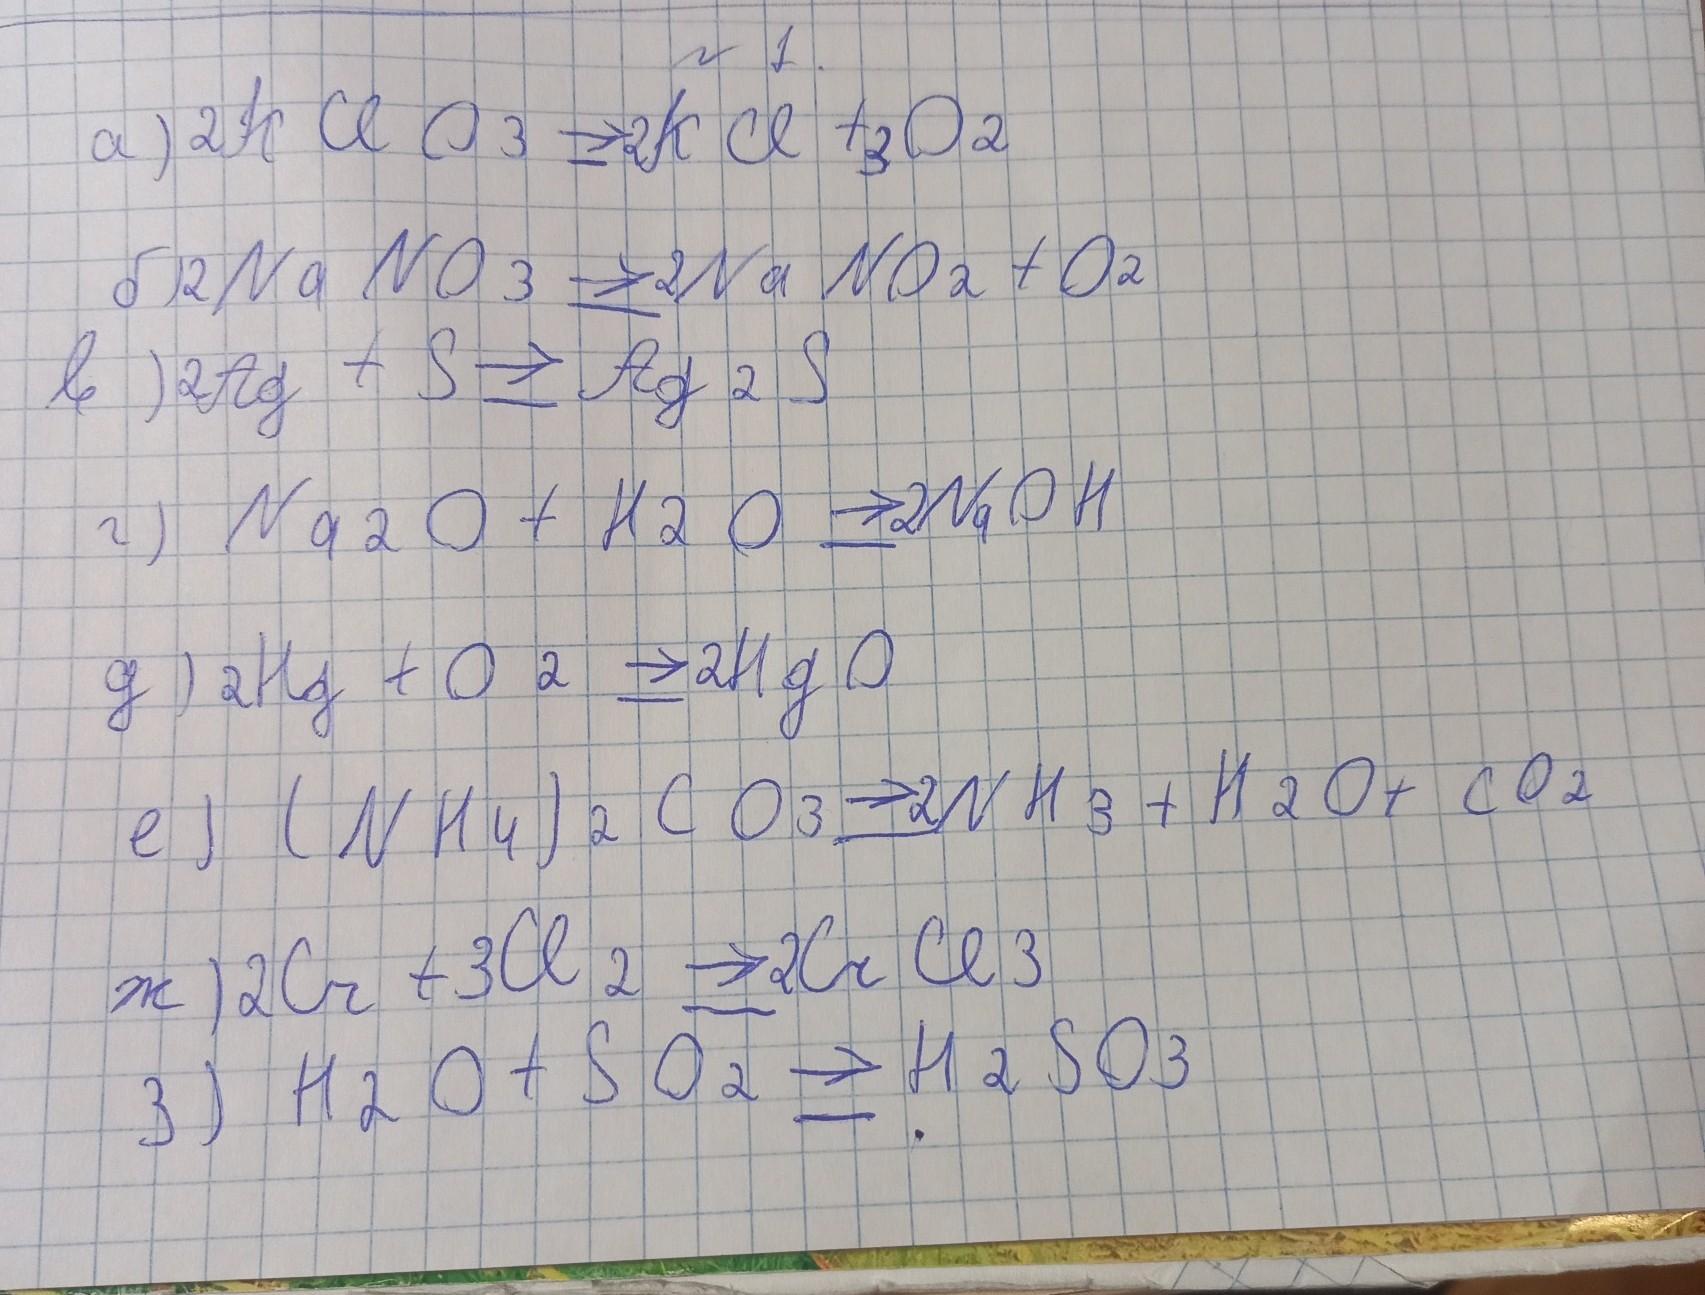 № 1.
а) 2KClO3 → 2KCl + 3O2
б) 2NaNO3 → 2NaNO2 + O2
в) 2Ag + S → Ag2S
г) Na2O + H2O → 2NaOH
д) 2Hg + O2 → 2HgO
е) (NH4)2CO3 → 2NH3 + H2O + CO2
ж) 2Cr + 3Cl2 → 2CrCl3
з) H2O + SO2 → H2SO3